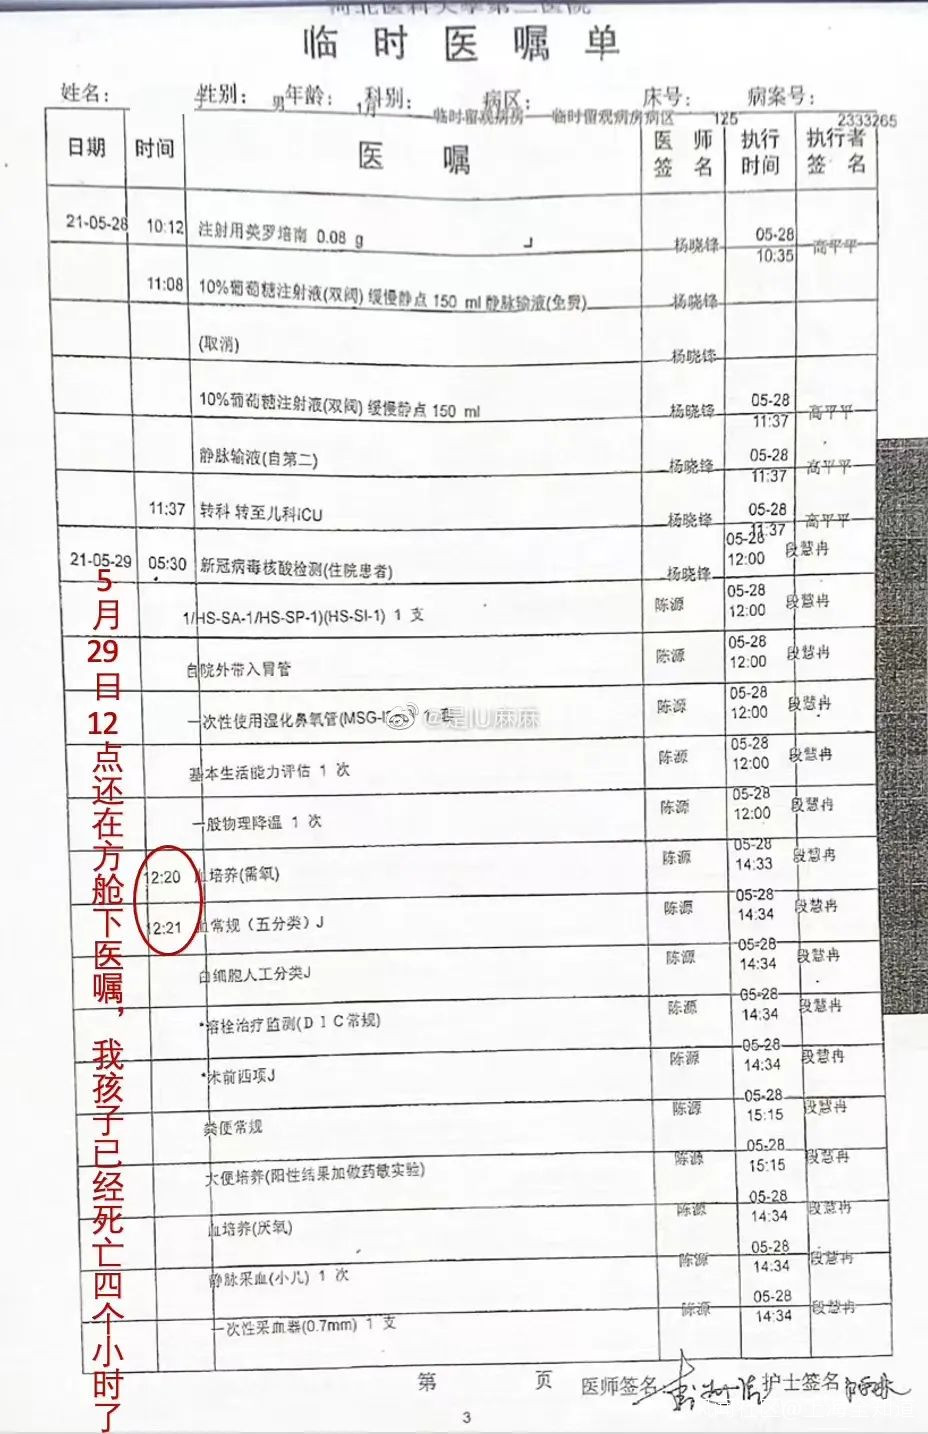 河北医科大学第二医院
临时医嘱单
姓名： 性别：男 年龄：1月 科别：临时留观病房 病区：临时留观病房病区 床号：125 病案号：2333265
日期 时间 医嘱 医师签名 执行时间 执行者签名
21-05-28 10:12 注射用美罗培南 0.08 g 杨晓锋 05-28 10:35 高平平
11:08 10%葡萄糖注射液(双阀) 缓慢静点 150 ml 静脉输液(免费) 杨晓锋
(取消) 杨晓锋
10%葡萄糖注射液(双阀) 缓慢静点 150 ml 杨晓锋 05-28 11:37 高平平
静脉输液(自第二) 杨晓锋 05-28 11:37 高平平
11:37 转科 转至儿科ICU 杨晓锋 05-28 11:37 高平平
21-05-29 05:30 新冠病毒核酸检测(住院患者) 杨晓锋 05-28 12:00 段慧冉
1/HS-SA-1/HS-SP-1)(HS-SI-1) 1 支 陈源 05-28 12:00 段慧冉
自院外带入胃管 陈源 05-28 12:00 段慧冉
一次性使用湿化鼻氧管(MSG-I 1 套 陈源 05-28 12:00 段慧冉
基本生活能力评估 1 次 陈源 05-28 12:00 段慧冉
一般物理降温 1 次 陈源 05-28 12:00 段慧冉
12:20 血培养(需氧) 陈源 05-28 14:33 段慧冉
12:21 血常规（五分类）J 陈源 05-28 14:34 段慧冉
白细胞人工分类J 陈源 05-28 14:34 段慧冉
*溶栓治疗监测(DIC常规) 陈源 05-28 14:34 段慧冉
*术前四项J 陈源 05-28 14:34 段慧冉
粪便常规 陈源 05-28 15:15 段慧冉
大便培养(阳性结果加做药敏实验) 陈源 05-28 15:15 段慧冉
血培养(厌氧) 陈源 05-28 14:34 段慧冉
静脉采血(小儿) 1 次 陈源 05-28 14:34 段慧冉
一次性采血器(0.7mm) 1 支 陈源 05-28 14:34 段慧冉
第 页 医师签名 护士签名
3
5月29日12点还在方舱下医嘱，我孩子已经死亡四个小时了
@是IU麻麻